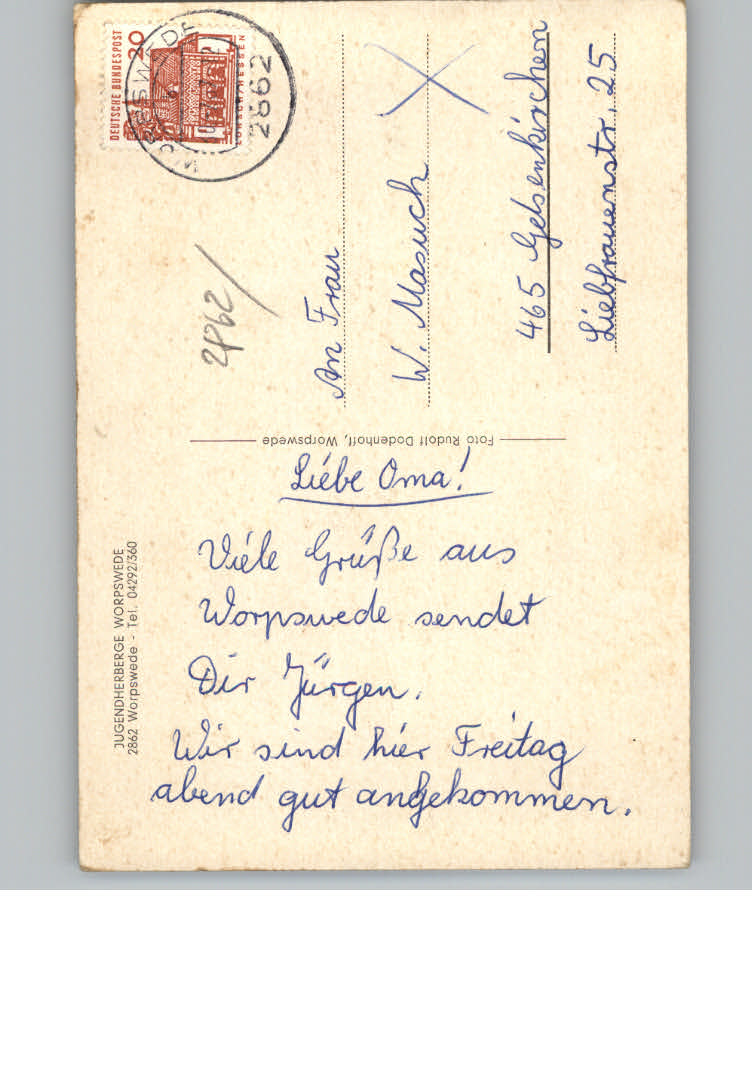 DEUTSCHE BUNDESPOST
20
WORPSWEDE
2862
2862/
An Frau
W. Masuch
465 Gelsenkirchen
Liebfrauenstr. 25
Foto Rudolf Dodenhoff, Worpswede
Liebe Oma!
Viele Grüße aus
Worpswede sendet
Dir Jürgen.
Wir sind hier Freitag
abend gut angekommen.
JUGENDHERBERGE WORPSWEDE
2862 Worpswede - Tel. 04292/360